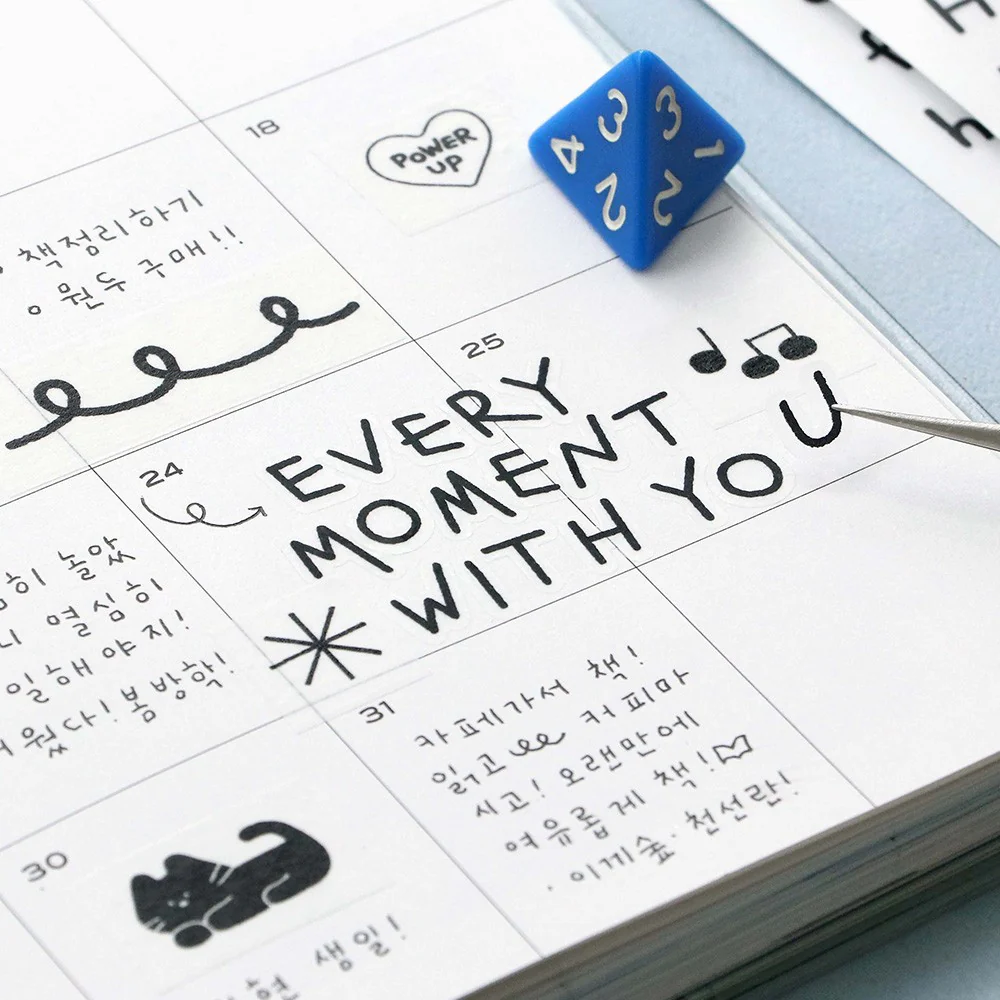 18
POWER
UP
4 3 3 1
2 2
책정리하기
원두 구매!!
25
EVERY
MOMENT
WITH YOU
24
히 놀았
열심히
일해야지!
웠다! 봄방학!
31
카페가서 책!
읽고 커피마
시고! 오랜만에
여유롭게 책!
· 이끼숲 · 천선란!
30
현 생일!
f
h
H